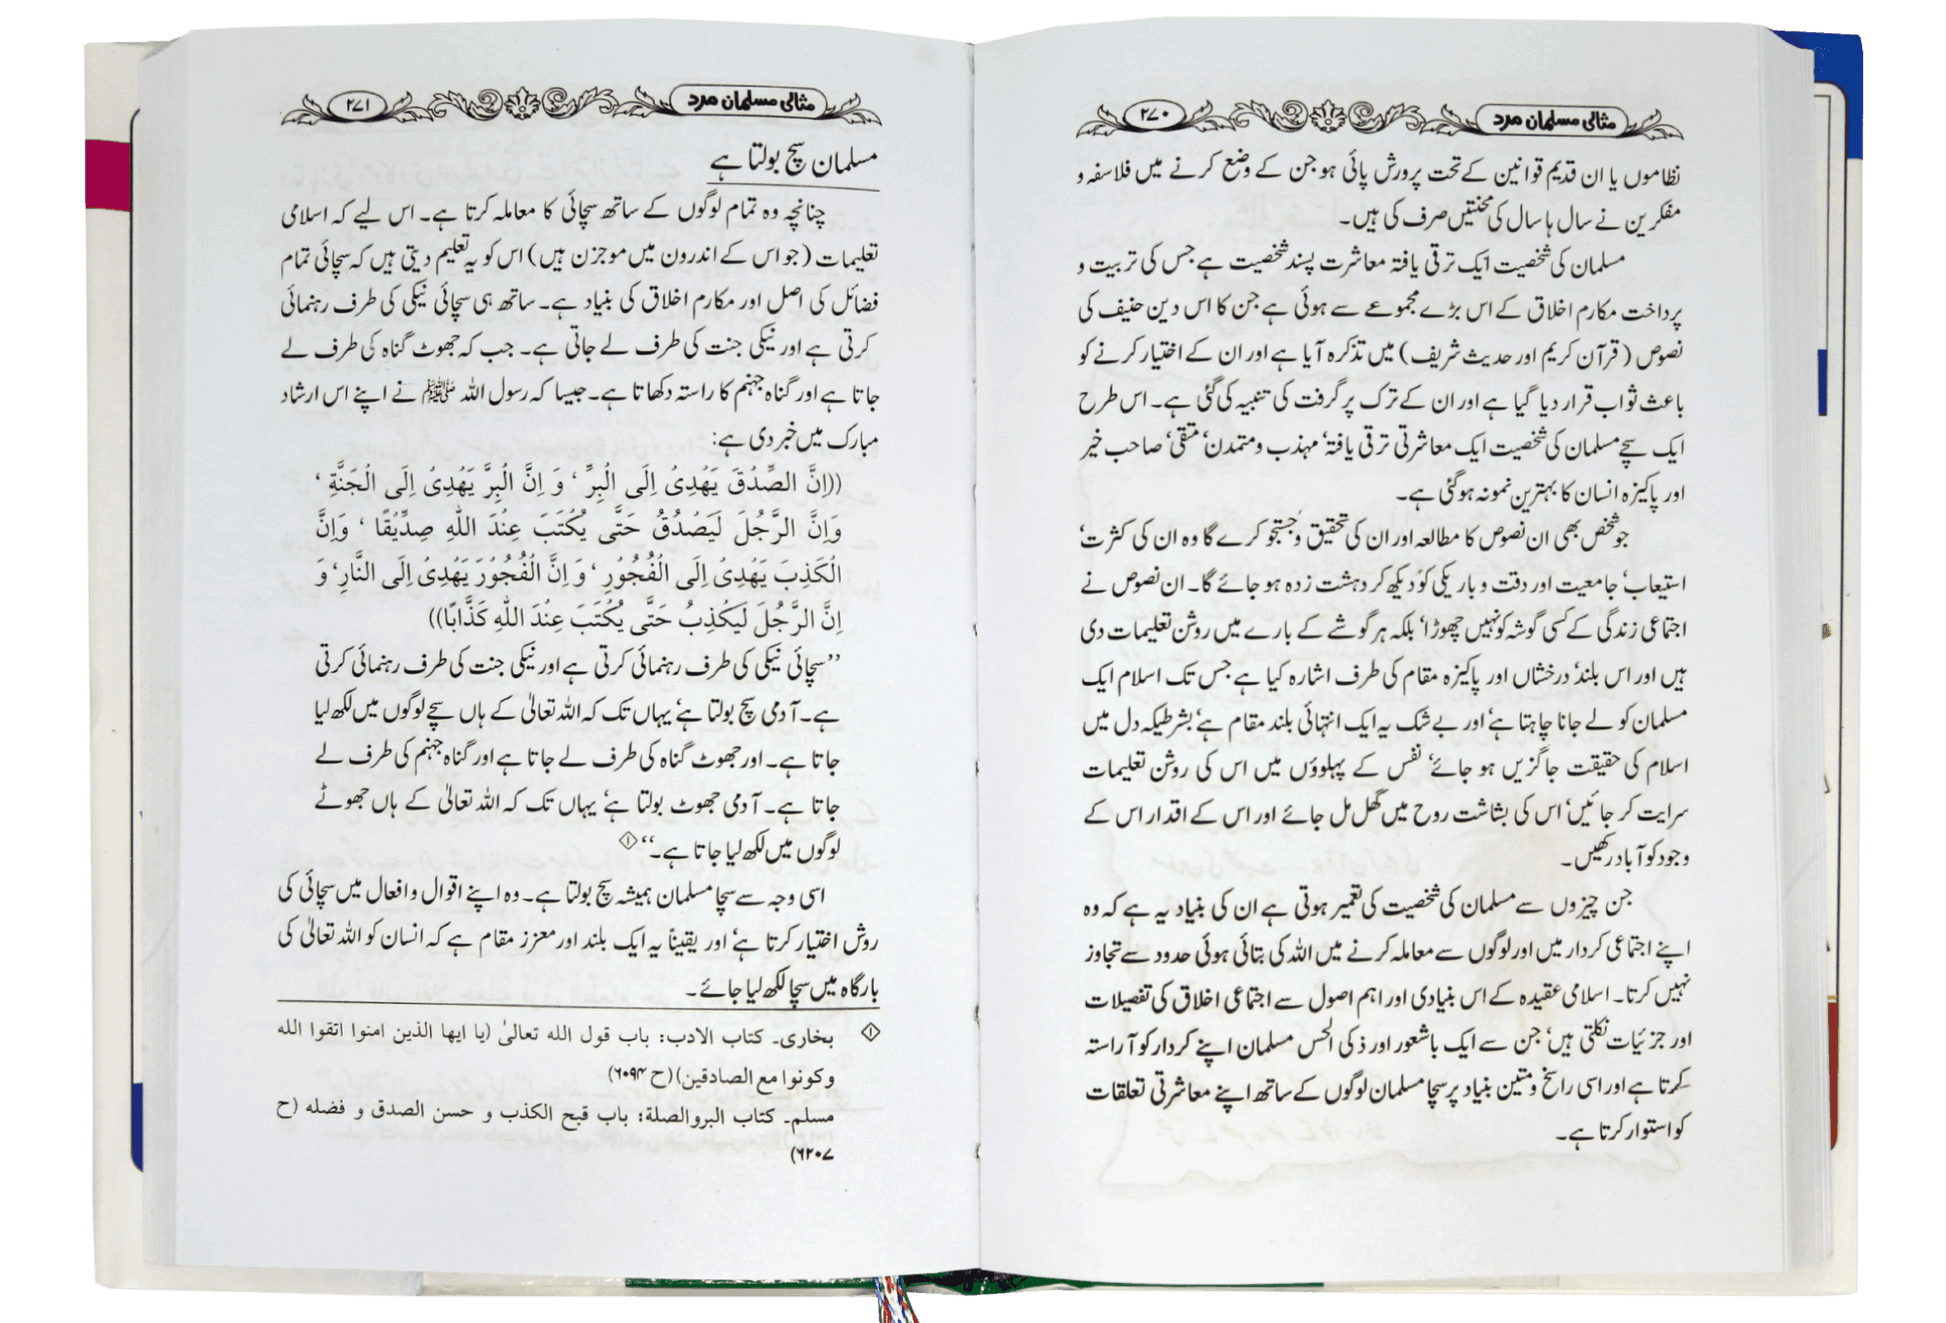 مثالی مسلمان مرد
۲۷۰
نظاموں یا ان قدیم قوانین کے تحت پرورش پائی ہو جن کے وضع کرنے میں فلاسفہ و
مفکرین نے سال ہا سال کی محنتیں صرف کی ہیں۔
مسلمان کی شخصیت ایک ترقی یافتہ معاشرت پسند شخصیت ہے جس کی تربیت و
پرداخت مکارم اخلاق کے اس بڑے مجموعے سے ہوئی ہے جن کا اس دین حنیف کی
نصوص (قرآن کریم اور حدیث شریف) میں تذکرہ آیا ہے اور ان کے اختیار کرنے کو
باعث ثواب قرار دیا گیا ہے اور ان کے ترک پر گرفت کی تنبیہ کی گئی ہے۔ اس طرح
ایک سچے مسلمان کی شخصیت ایک معاشرتی ترقی یافتہ‘ مہذب و متمدن‘ متقی‘ صاحب خیر
اور پاکیزہ انسان کا بہترین نمونہ ہو گئی ہے۔
جو شخص بھی ان نصوص کا مطالعہ اور ان کی تحقیق و جستجو کرے گا وہ ان کی کثرت‘
استیعاب‘ جامعیت اور دقت و باریکی کو دیکھ کر دہشت زدہ ہو جائے گا۔ ان نصوص نے
اجتماعی زندگی کے کسی گوشہ کو نہیں چھوڑا‘ بلکہ ہر گوشے کے بارے میں روشن تعلیمات دی
ہیں اور اس بلند‘ درخشاں اور پاکیزہ مقام کی طرف اشارہ کیا ہے جس تک اسلام ایک
مسلمان کو لے جانا چاہتا ہے‘ اور بے شک یہ ایک انتہائی بلند مقام ہے‘ بشرطیکہ دل میں
اسلام کی حقیقت جاگزیں ہو جائے‘ نفس کے پہلوؤں میں اس کی روشن تعلیمات
سرایت کر جائیں‘ اس کی بشاشت روح میں گھل مل جائے اور اس کے اقدار اس کے
وجود کو آباد رکھیں۔
جن چیزوں سے مسلمان کی شخصیت کی تعمیر ہوتی ہے ان کی بنیاد یہ ہے کہ وہ
اپنے اجتماعی کردار میں اور لوگوں سے معاملہ کرنے میں اللہ کی بتائی ہوئی حدود سے تجاوز
نہیں کرتا۔ اسلامی عقیدہ کے اس بنیادی اور اہم اصول سے اجتماعی اخلاق کی تفصیلات
اور جزئیات نکلتی ہیں‘ جن سے ایک باشعور اور ذکی الحس مسلمان اپنے کردار کو آراستہ
کرتا ہے اور اسی راسخ و متین بنیاد پر سچا مسلمان لوگوں کے ساتھ اپنے معاشرتی تعلقات
کو استوار کرتا ہے۔
مثالی مسلمان مرد
۲۷۱
مسلمان سچ بولتا ہے
چنانچہ وہ تمام لوگوں کے ساتھ سچائی کا معاملہ کرتا ہے۔ اس لیے کہ اسلامی
تعلیمات (جو اس کے اندرون میں موجزن ہیں) اس کو یہ تعلیم دیتی ہیں کہ سچائی تمام
فضائل کی اصل اور مکارم اخلاق کی بنیاد ہے۔ ساتھ ہی سچائی نیکی کی طرف رہنمائی
کرتی ہے اور نیکی جنت کی طرف لے جاتی ہے۔ جب کہ جھوٹ گناہ کی طرف لے
جاتا ہے اور گناہ جہنم کا راستہ دکھاتا ہے۔ جیسا کہ رسول اللہ ﷺ نے اپنے اس ارشاد
مبارک میں خبر دی ہے:
((اِنَّ الصِّدْقَ یَهْدِیْ اِلَی الْبِرِّ ‘ وَ اِنَّ الْبِرَّ یَهْدِیْ اِلَی الْجَنَّةِ ‘
وَاِنَّ الرَّجُلَ لَیَصْدُقُ حَتّٰی یُکْتَبَ عِنْدَ اللّٰهِ صِدِّیْقًا ‘ وَاِنَّ
الْکَذِبَ یَهْدِیْ اِلَی الْفُجُوْرِ ‘ وَ اِنَّ الْفُجُوْرَ یَهْدِیْ اِلَی النَّارِ‘ وَ
اِنَّ الرَّجُلَ لَیَکْذِبُ حَتّٰی یُکْتَبَ عِنْدَ اللّٰهِ کَذَّابًا))
’’سچائی نیکی کی طرف رہنمائی کرتی ہے اور نیکی جنت کی طرف رہنمائی کرتی
ہے۔ آدمی سچ بولتا ہے‘ یہاں تک کہ اللہ تعالیٰ کے ہاں سچے لوگوں میں لکھ لیا
جاتا ہے۔ اور جھوٹ گناہ کی طرف لے جاتا ہے اور گناہ جہنم کی طرف لے
جاتا ہے۔ آدمی جھوٹ بولتا ہے‘ یہاں تک کہ اللہ تعالیٰ کے ہاں جھوٹے
لوگوں میں لکھ لیا جاتا ہے۔‘‘ ۱
اسی وجہ سے سچا مسلمان ہمیشہ سچ بولتا ہے۔ وہ اپنے اقوال و افعال میں سچائی کی
روش اختیار کرتا ہے‘ اور یقیناً یہ ایک بلند اور معزز مقام ہے کہ انسان کو اللہ تعالیٰ کی
بارگاہ میں سچا لکھ لیا جائے۔
۱ بخاری۔ کتاب الادب: باب قول الله تعالیٰ (یا ایها الذین امنوا اتقوا الله
وکونوا مع الصادقین) (ح ۶۰۹۴)
مسلم۔ کتاب البروالصلة: باب قبح الکذب و حسن الصدق و فضله (ح
۶۲۰۷)